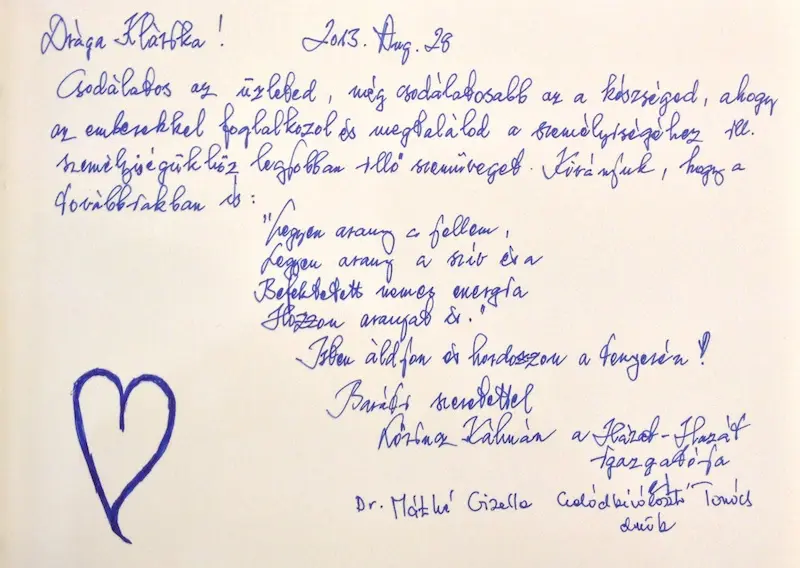 Drága Klárika! 2013. Aug. 28
Csodálatos az üzleted, még csodálatosabb az a készséged, ahogy
az emberekkel foglalkozol és megtalálod a személyiségéhez ill.
személyiségükhöz legjobban illő szemüveget. Kívánjuk, hogy a
továbbiakban is:
"Legyen arany a jellem,
Legyen arany a szív és a
Befektetett nemes energia
Hozzon aranyat is."
Isten áldjon és hordozzon a tenyerén!
Baráti szeretettel
Kálmán a Házat-Hazát
Igazgatója
Dr. Máthé Gizella